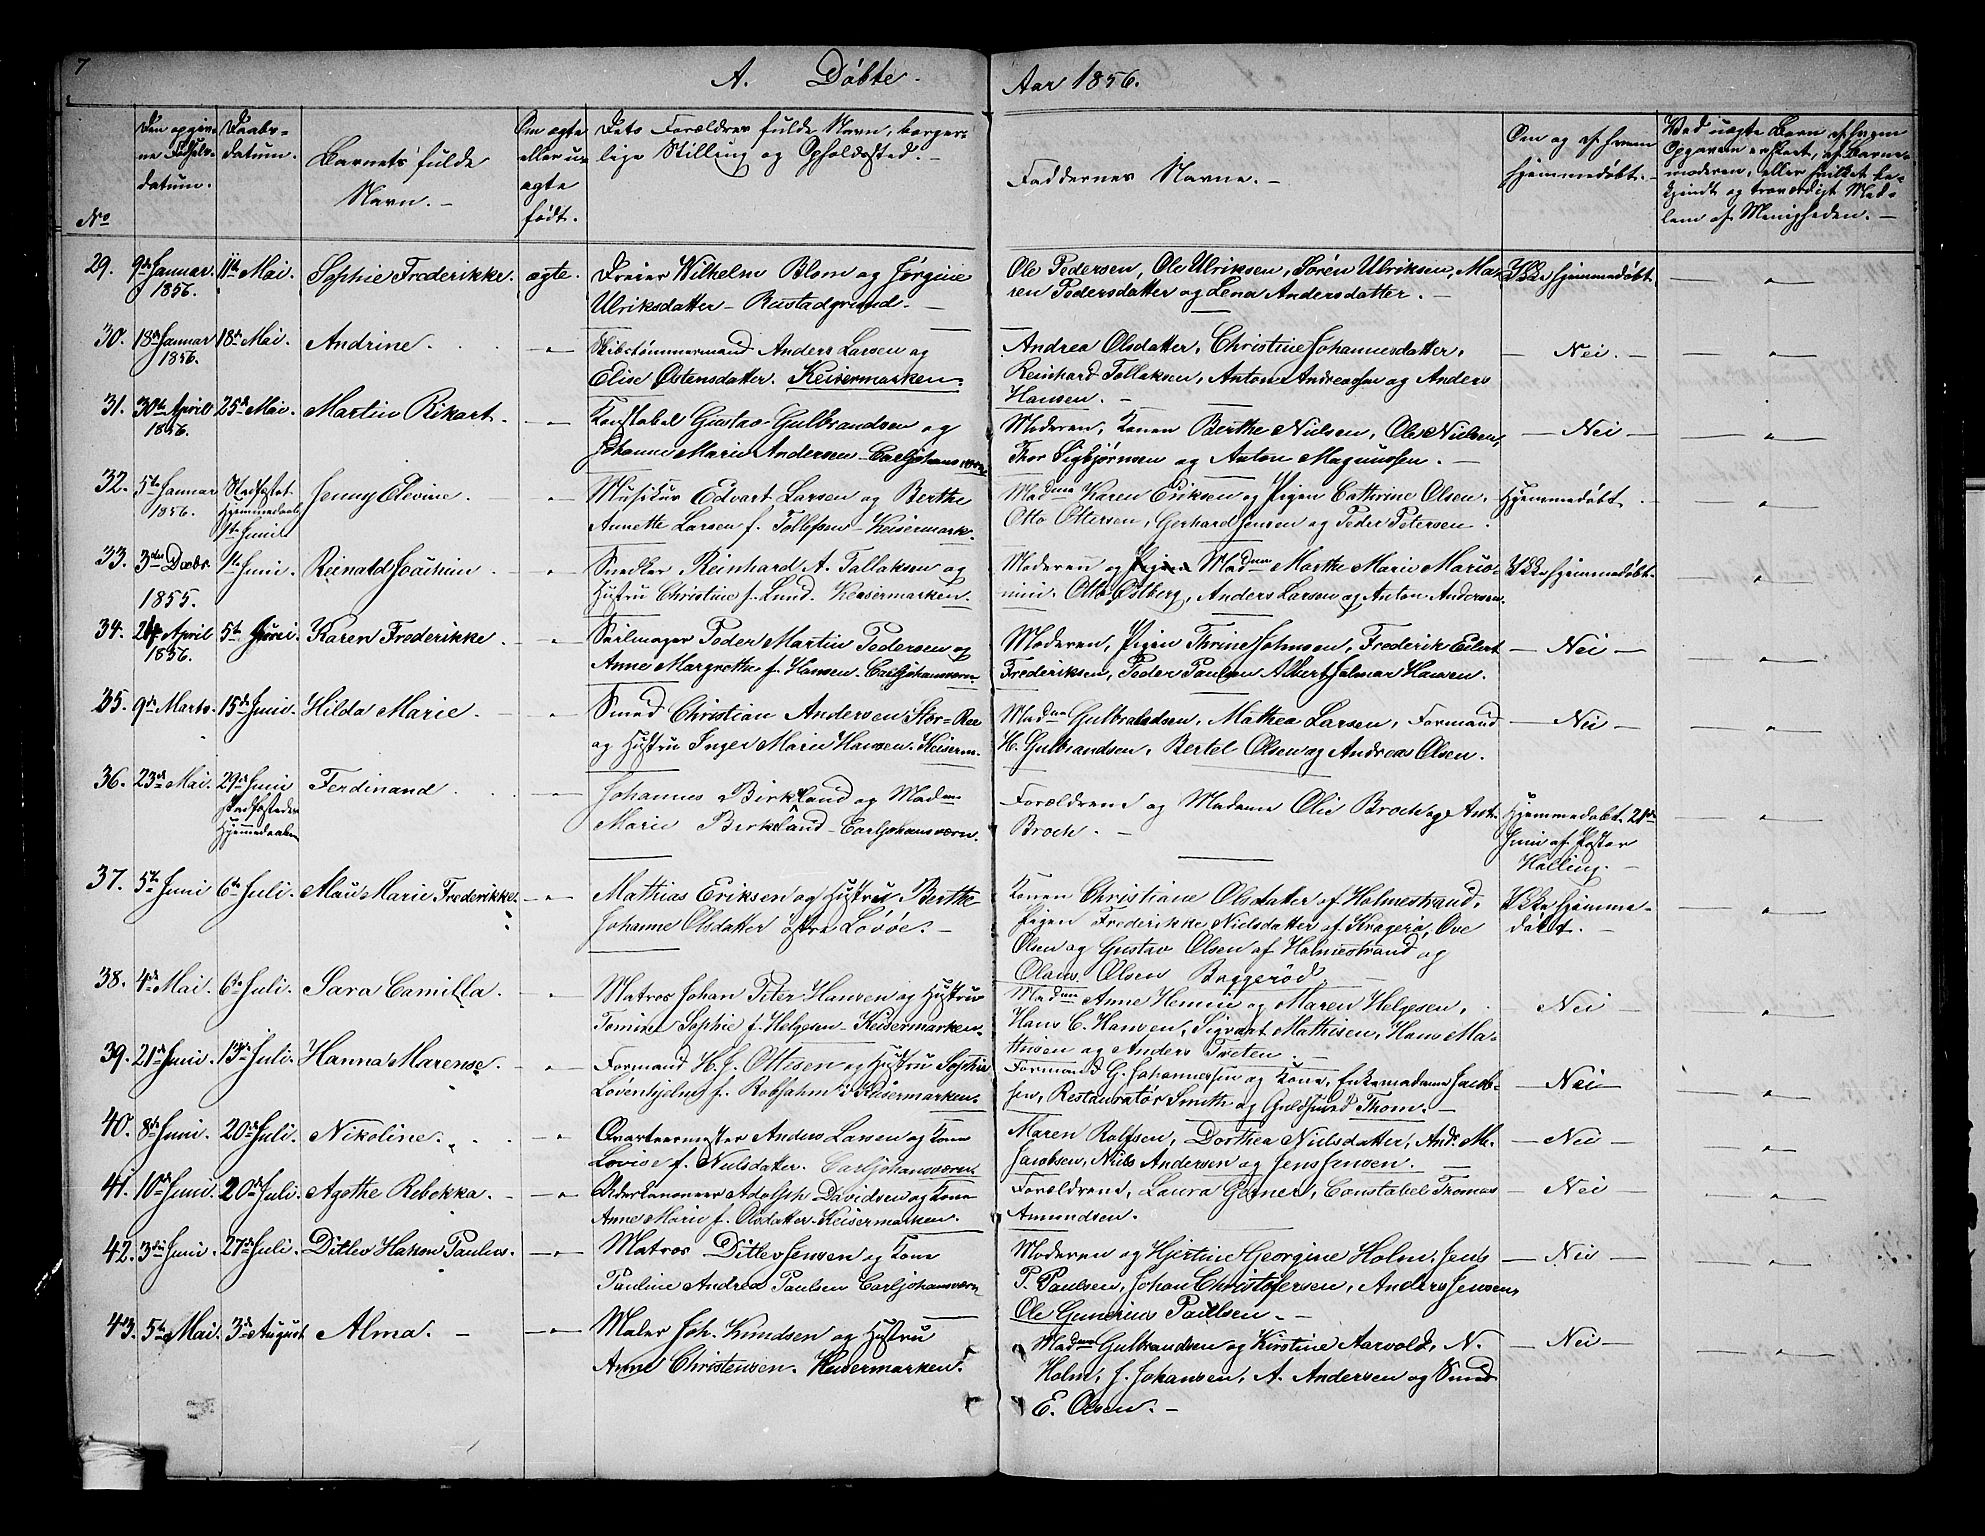 7
A. Döbte.
Aar 1856.
No
Den opgiv-
ne Fødsels-
datum.
Daabs-
datum.
Barnets fulde
Navn. -
Om ægte
eller u-
ægte
født.
Dets Forældres fulde Navn, borger-
lige Stilling og Opholdssted. -
Faddernes Navne. -
Om og af hvem
hjemmedöbt. -
Ved uægte Barn af hvem
Opgaven er skeet, af Barne-
moderen, eller hvilket be-
kjendt og troværdigt Med-
lem af Menigheden. -
29. 9de Januar 1856. 11te Mai. Sophie Frederikke. ægte.
Dreier Wilhelm Blom og Jørgine
Ulriksdatter - Rustadgrund. -
Ole Pedersen, Ole Ulriksen, Sören Ulriksen, Ma-
ren Pedersdatter og Lena Andersdatter. -
Ikke hjemmedöbt. - " -
30. 18de Januar 1856. 18de Mai. Andrine. - " -
Skibstømmermand Anders Larsen og
Elise Østensdatter. Keisermarken.
Andrea Olsdatter, Christine Johannesdatter,
Reinhard Tollaksen, Anton Andreassen og Anders
Hansen. -
- Nei. - - " -
31. 30te April 1856. 25de Mai. Martin Rikart. - " -
Konstabel Gustav Gulbrandsen og
Johanne Marie Andersen - Carljohansværn
Moderen, Konen Berthe Nielsen, Ole Nielsen,
Thor Sigbjørnsen og Anton Magnussen. -
- Nei - - " -
32. 5te Januar 1856. Stadfæstet Hjemmedaab 1te Juni Jenny Elevine. - " -
Musikus Edvart Larsen og Berthe
Annette Larsen f. Tollefsen - Keisermark.
Madme Karen Eriksen og Pigen Cathrine Olsen,
Otto Ottersen, Gerhard Jensen og Peder Petersen.
Hjemmedöbt. - " -
33. 3die Decbr 1855. 1te Juni. Reinald Joachim. - " -
Snedker Reinhard A. Tallaksen og
Hustru Christine f. Lund. Keisermarken.
Moderen og Pigen Madme Marthe Marie Mario-
mini. Otto Østberg, Anders Larsen og Anton Andersen.
Ikke hjemmedöbt. - " -
34. April 1856. 5te Juni. Karen Frederikke. - " -
Seilmager Peder Martin Pedersen og
Anne Margrethe f. Hansen. Carljohansværn.
Moderen, Pigen Thrine Johnsen, Frederik Eilert
Frederiksen, Peder Paulsen Albert Jalmar Hansen.
- Nei - - " -
35. 9de Marts. 15de Juni. Hilda Marie. - " -
Smed Christian Andersen Stor-Ree
og Hustru Inger Marie Hansen. Keiserm.
Madme Gulbrandsen, Mathea Larsen, Formand
H. Gulbrandsen, Bertel Olsen og Andreas Olsen.
- Nei - - " -
36. 23de Mai. 29de Juni stadfæstedes Hjemmedaaben Ferdinand. - " -
Johannes Birkeland og Madme
Marie Birkeland - Carljohansværn.
Forældrene og Madame Olie Broch og Ant.
Broch. -
Hjemmedøbt 21de
Juni af Pastor
Halling. - - " -
37. 5te Juni 6te Juli. Maui Marie Frederikke. - " -
Mathias Eriksen og Hustru Berthe
Johanne Olsdatter östre Lövöe. -
Konen Christiane Olsdatter af Holmestrand,
Pigen Frederikke Nielsdatter af Kragerø, Ove
Olsen og Gustav Olsen af Holmestrand og
Olaus Olsen Baggeröd.
Ikke hjemme-
döbt. - - " -
38. 4de Mai. 6te Juli. Sara Camilla. - " -
Matros Johan Peter Hansen og Hustru
Tomine Sophie f. Helgesen - Keisermarken.
Madme Anne Henric og Maren Helgesen,
Hans C. Hansen, Sigvart Mathisen, Hans Ma-
thisen og Anders Treten. -
- Nei - - " -
39. 21de Juni. 13de Juli. Hanna Marense. - " -
Formand H. J. Ottisen og Hustru Sophie
Løvenhjelm f. Robsahm i Keisermarken.
Formand G. Johannessen og Kone, Enkemadame Jacob-
sen, Restauratör Smith og Guldsmed Thom. -
- Nei - - " -
40. 8de Juni. 20de Juli. Nikoline. - " -
Qvarteermester Anders Larsen og Kone
Lovise f. Nielsdatter. Carljohansværn.
Maren Rolfsen, Dorthea Nielsdatter, And. M.
Jacobsen, Niels Andersen og Jens Jensen. -
- Nei - - " -
41. 10de Juni. 20de Juli. Agathe Rebekka. - " -
Overkanoneer Adolph Davidsen og Kone
Anne Marie f. Olsdatter - Keisermarken.
Forældrene, Laura Gerner, Constabel Thomas
Amundsen.
- Nei - - " -
42. 3die Juni. 27de Juli. Ditlev Hakon Paulus. - " -
Matros Ditlev Jensen og Kone
Pauline Andrea Paulsen Carljohansværn
Moderen og Hjertine Georgine Holm. Jens
P. Paulsen, Johan Christofersen, Anders Jensen,
Ole Gunerius Paulsen. -
- Nei - - " -
43. 5te Mai. 3de August Alma. - - " -
Maler Joh. Knudsen og Hustru
Anne Christensen. Keisermarken.
Madme Gulbrandsen og Kirstine Aarvold, N.
Holm, J. Johansen, A. Andersen og Smed
E. Olsen. -
- Nei - - " -